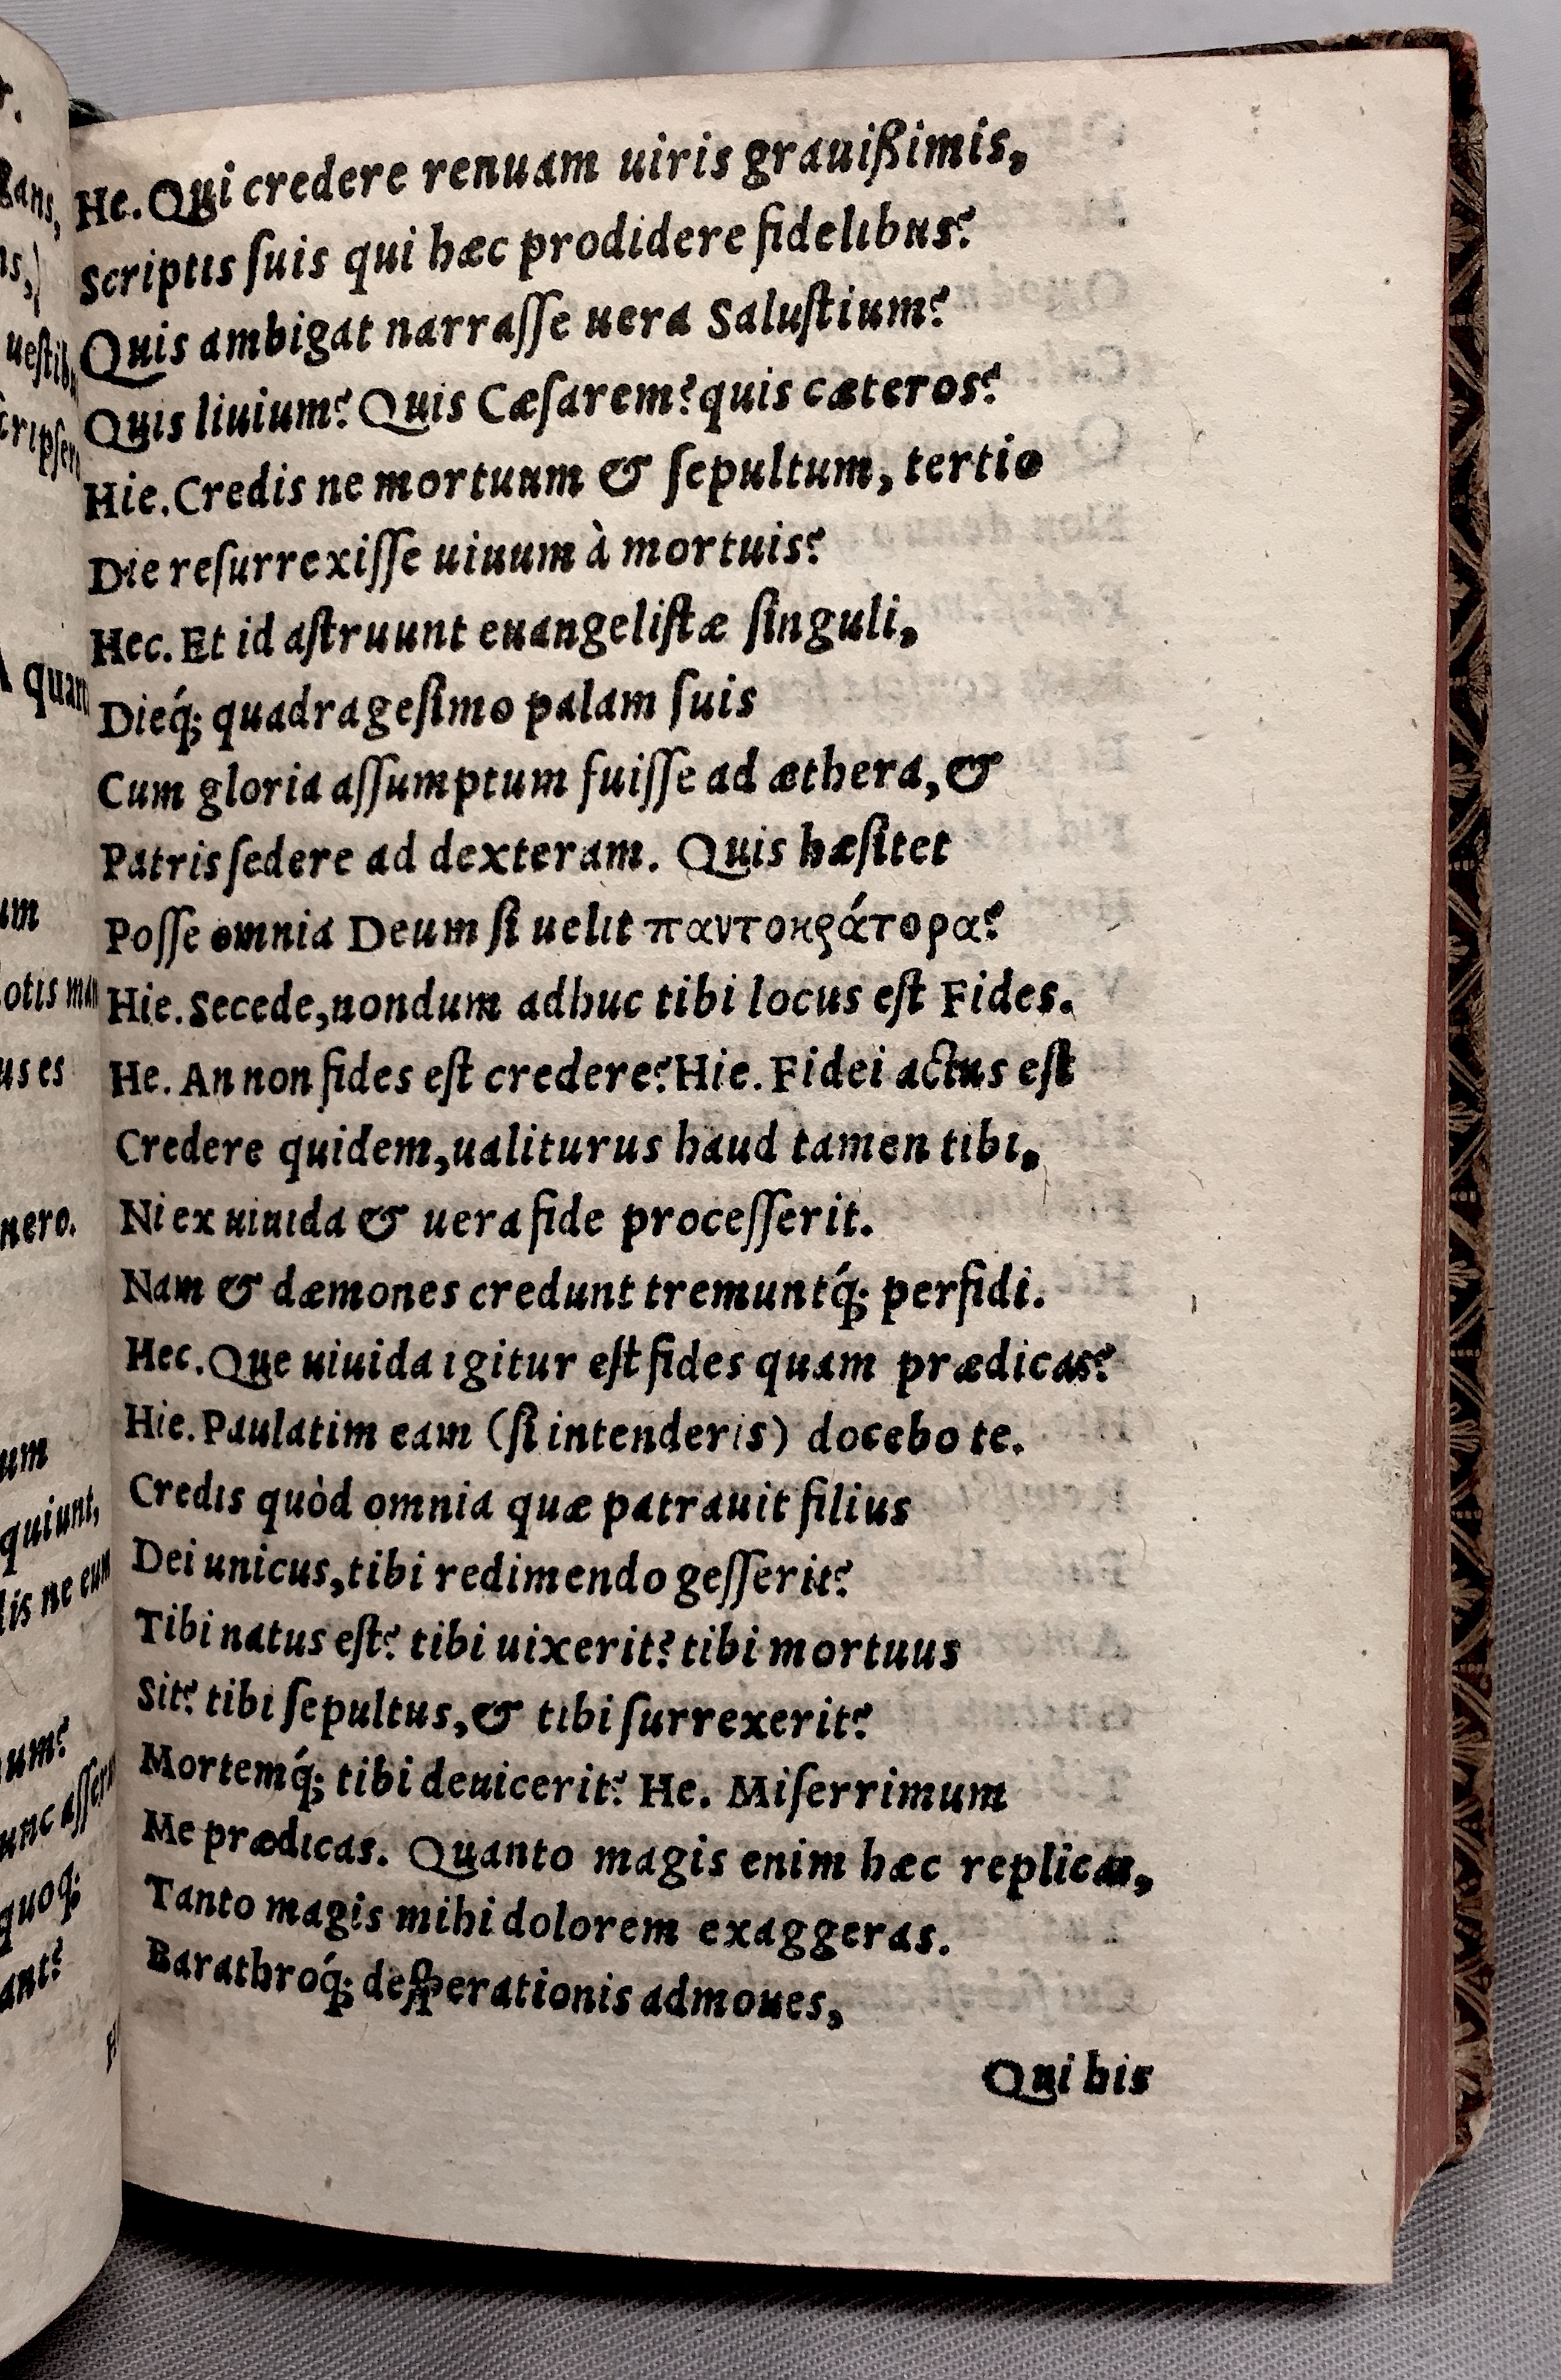 He. Qui credere renuam uiris grauißimis,
Scriptis ſuis qui hæc prodidere fidelibus?
Quis ambigat narraſſe uera Saluſtium?
Quis liuium? Quis Cæſarem? quis cæteros?
Hie. Credis ne mortuum & ſepultum, tertio
Die reſurrexiſſe uiuum à mortuis?
Hec. Et id aſtruunt euangeliſtæ ſinguli,
Dieq́; quadrageſimo palam ſuis
Cum gloria aſſumptum fuiſſe ad æthera, &
Patris ſedere ad dexteram. Quis hæſitet
Poſſe omnia Deum ſi uelit παντοκράτορα?
Hie. Secede, nondum adhuc tibi locus eſt Fides.
He. An non fides eſt credere? Hie. Fidei actus eſt
Credere quidem, ualiturus haud tamen tibi,
Ni ex uiuida & uera fide proceſſerit.
Nam & dæmones credunt tremuntq́; perfidi.
Hec. Que uiuida igitur eſt fides quam prædicas?
Hie. Paulatim eam (ſi intenderis) docebo te.
Credis quòd omnia quæ patrauit filius
Dei unicus, tibi redimendo geſſerit?
Tibi natus eſt? tibi uixerit? tibi mortuus
Sit? tibi ſepultus, & tibi ſurrexerit?
Mortemq́; tibi deuicerit? He. Miſerrimum
Me prædicas. Quanto magis enim hæc replicas,
Tanto magis mihi dolorem exaggeras.
Barathroq́; deſperationis admoues,
Qui his